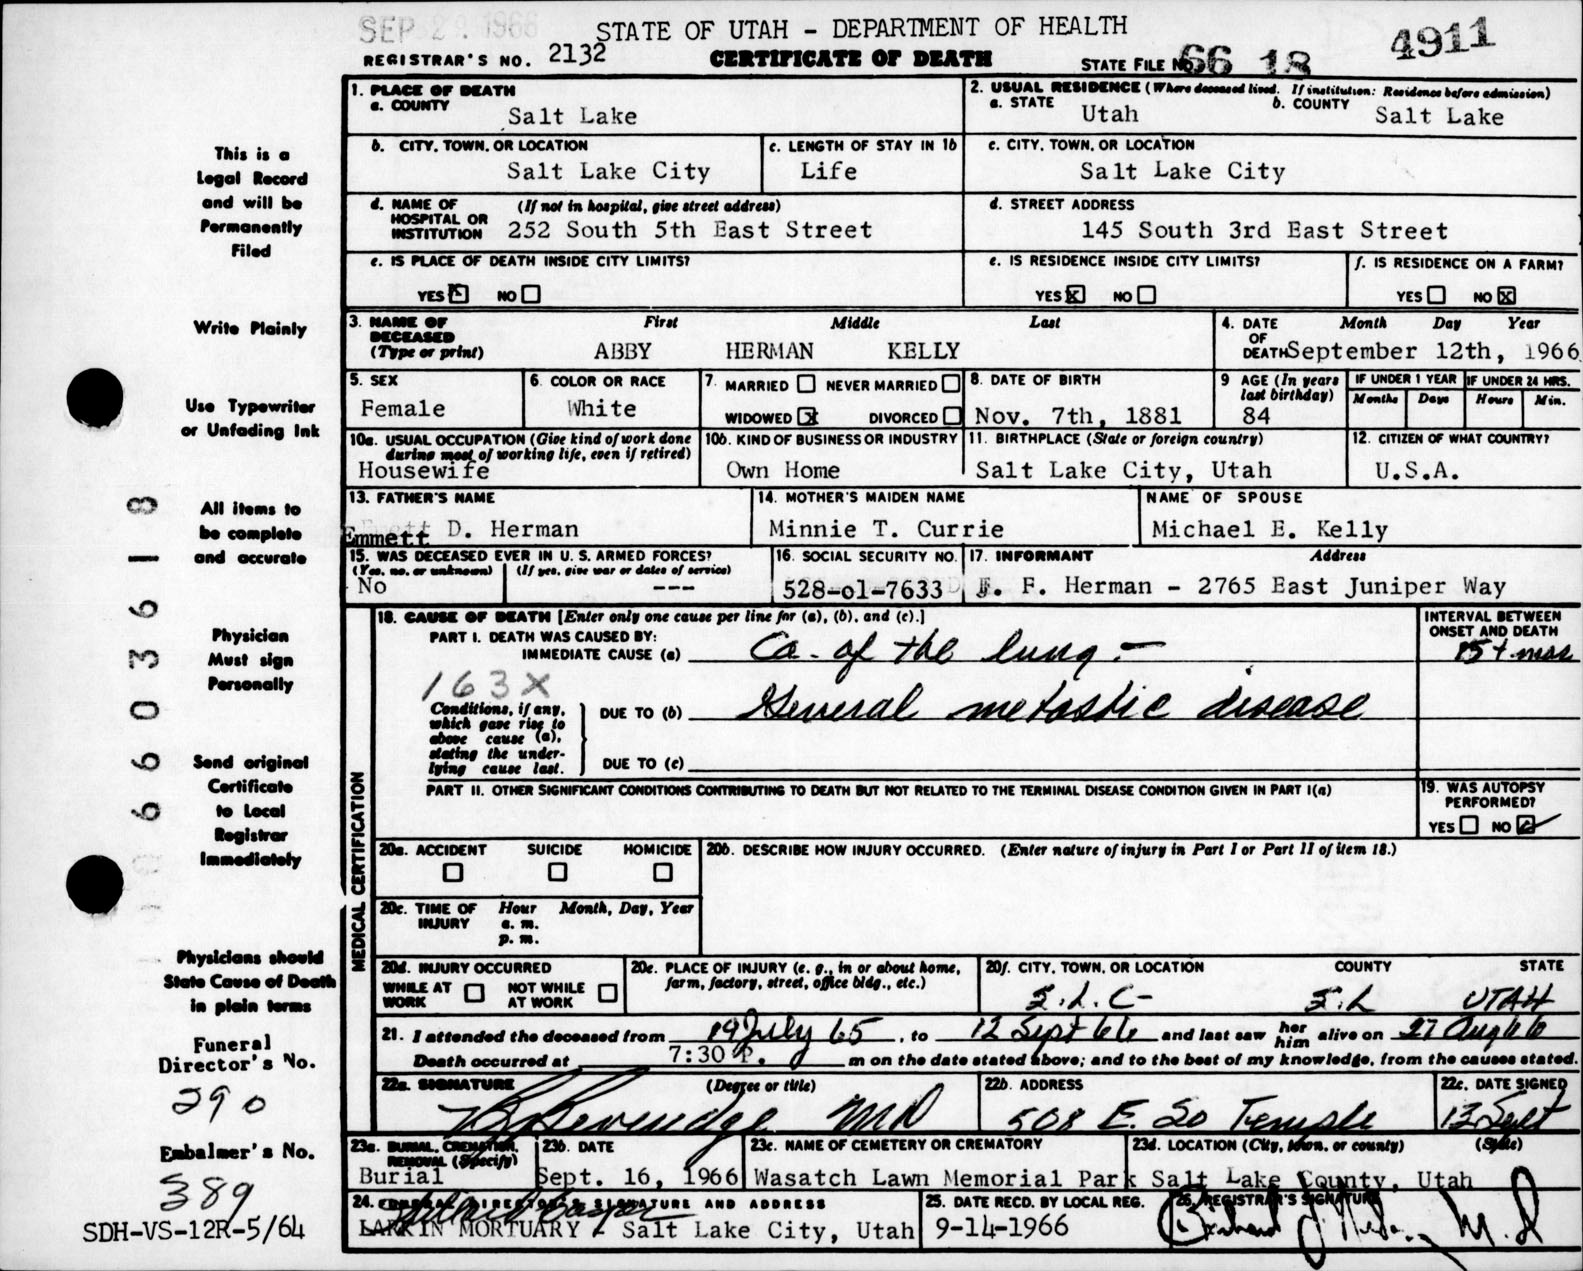 SEP 2 . 1966
STATE OF UTAH - DEPARTMENT OF HEALTH
4911
REGISTRAR'S NO. 2132
CERTIFICATE OF DEATH
STATE FILE NO. 66 18
1. PLACE OF DEATH
a. COUNTY
Salt Lake
2. USUAL RESIDENCE (Where deceased lived. If institution: Residence before admission)
a. STATE
Utah
b. COUNTY
Salt Lake
b. CITY, TOWN, OR LOCATION
Salt Lake City
c. LENGTH OF STAY IN 1b
Life
c. CITY, TOWN, OR LOCATION
Salt Lake City
d. NAME OF HOSPITAL OR INSTITUTION
(If not in hospital, give street address)
252 South 5th East Street
d. STREET ADDRESS
145 South 3rd East Street
e. IS PLACE OF DEATH INSIDE CITY LIMITS?
YES X NO
e. IS RESIDENCE INSIDE CITY LIMITS?
YES X NO
f. IS RESIDENCE ON A FARM?
YES NO X
3. NAME OF DECEASED (Type or print)
First Middle Last
ABBY HERMAN KELLY
4. DATE OF DEATH
Month Day Year
September 12th, 1966
5. SEX
Female
6. COLOR OR RACE
White
7. MARRIED NEVER MARRIED
WIDOWED X DIVORCED
8. DATE OF BIRTH
Nov. 7th, 1881
9 AGE (In years last birthday)
84
IF UNDER 1 YEAR
Months Days
IF UNDER 24 HRS.
Hours Min.
10a. USUAL OCCUPATION (Give kind of work done during most of working life, even if retired)
Housewife
10b. KIND OF BUSINESS OR INDUSTRY
Own Home
11. BIRTHPLACE (State or foreign country)
Salt Lake City, Utah
12. CITIZEN OF WHAT COUNTRY?
U.S.A.
13. FATHER'S NAME
Emmett D. Herman
14. MOTHER'S MAIDEN NAME
Minnie T. Currie
NAME OF SPOUSE
Michael E. Kelly
15. WAS DECEASED EVER IN U. S. ARMED FORCES?
(Yes, no, or unknown) (If yes, give war or dates of service)
No ---
16. SOCIAL SECURITY NO.
528-01-7633
17. INFORMANT Address
F. Herman - 2765 East Juniper Way
18. CAUSE OF DEATH [Enter only one cause per line for (a), (b), and (c).]
PART I. DEATH WAS CAUSED BY:
IMMEDIATE CAUSE (a) Ca. of the lung -
INTERVAL BETWEEN ONSET AND DEATH
15+ mos
163X
Conditions, if any, which gave rise to above cause (a), stating the underlying cause last.
DUE TO (b) General metastic disease
DUE TO (c)
PART II. OTHER SIGNIFICANT CONDITIONS CONTRIBUTING TO DEATH BUT NOT RELATED TO THE TERMINAL DISEASE CONDITION GIVEN IN PART I(a)
19. WAS AUTOPSY PERFORMED?
YES NO
MEDICAL CERTIFICATION
20a. ACCIDENT SUICIDE HOMICIDE
20b. DESCRIBE HOW INJURY OCCURRED. (Enter nature of injury in Part I or Part II of item 18.)
20c. TIME OF INJURY
Hour Month, Day, Year
a. m.
p. m.
20d. INJURY OCCURRED
WHILE AT WORK NOT WHILE AT WORK
20e. PLACE OF INJURY (e. g., in or about home, farm, factory, street, office bldg., etc.)
20f. CITY, TOWN, OR LOCATION COUNTY STATE
S.L.C- S.L UTAH
21. I attended the deceased from 19 July 65, to 12 Sept 66 and last saw her him alive on 27 Aug 66
Death occurred at 7:30 P. m on the date stated above; and to the best of my knowledge, from the causes stated.
22a. SIGNATURE (Degree or title)
MD
22b. ADDRESS
508 E. So Temple
22c. DATE SIGNED
13 Sept
23a. BURIAL, CREMATION, REMOVAL (Specify)
Burial
23b. DATE
Sept. 16, 1966
23c. NAME OF CEMETERY OR CREMATORY
Wasatch Lawn Memorial Park
23d. LOCATION (City, town, or county) (State)
Salt Lake County, Utah
24. FUNERAL DIRECTOR'S SIGNATURE AND ADDRESS
LARKIN MORTUARY - Salt Lake City, Utah
25. DATE RECD. BY LOCAL REG.
9-14-1966
26. REGISTRAR'S SIGNATURE
M.D
This is a
Legal Record
and will be
Permanently
Filed
Write Plainly
Use Typewriter
or Unfading Ink
All items to
be complete
and accurate
Physician
Must sign
Personally
Send original
Certificate
to Local
Registrar
Immediately
Physicians should
State Cause of Death
in plain terms
Funeral
Director's No.
290
Embalmer's No.
389
SDH-VS-12R-5/64